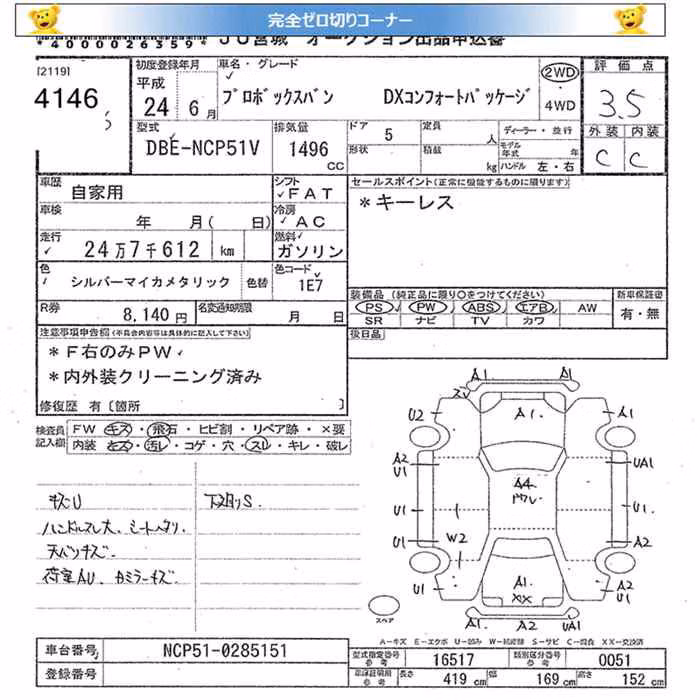 完全ゼロ切りコーナー
*4000026359* JU宮城 オークション出品申込書
[2119]
4146
初度登録年月
平成
24 6 月
車名・グレード
プロボックスバン DXコンフォートパッケージ
2WD
4WD
評価点
3.5
外装 内装
C C
型式
DBE-NCP51V
排気量
1496
CC
ドア 5
定員 人
形状
積載 kg
ディーラー・並行
モデル年式 年
ハンドル 左・右
車歴
自家用
シフト
FAT
車検
年 月( 日)
冷房
AC
走行
24万7千612 km
燃料
ガソリン
色
シルバーマイカメタリック
色替
色コード
1E7
R券
8,140円
名変通知期限
月 日
セールスポイント(正常に機能するものに限ります)
*キーレス
装備品 (純正品に限り○をつけてください)
PS PW ABS エアB AW
SR ナビ TV カワ
新車保証書
有・無
後日品
注意事項申告欄(不具合内容等は具体的に記入して下さい)
*F右のみPW
*内外装クリーニング済み
修復歴 有〔箇所 〕
検査員記入欄
FW キズ・飛石・ヒビ割・リペア跡・×要
内装 キズ・汚レ・コゲ・穴・スレ・キレ・破レ
下廻りS
ハンドルスレ大、シートヘタリ
天バリキズ
荷室AU、カミラーキズ
A1 A1
U2 A1 A1
A2 U1 UA1
A4
U1 U1
U1 A2
W2
A1 XX
U1 A2 U1
A1 A2 UA1
スペア
A-キズ E-エクボ U-凹み W-補修跡 S-サビ C-腐食 XX-交換済
車台番号
NCP51-0285151
登録番号
型式指定番号 参考
16517
類別区分番号 参考
0051
車庫証明用 参考
長さ 419 cm 幅 169 cm 高さ 152 cm